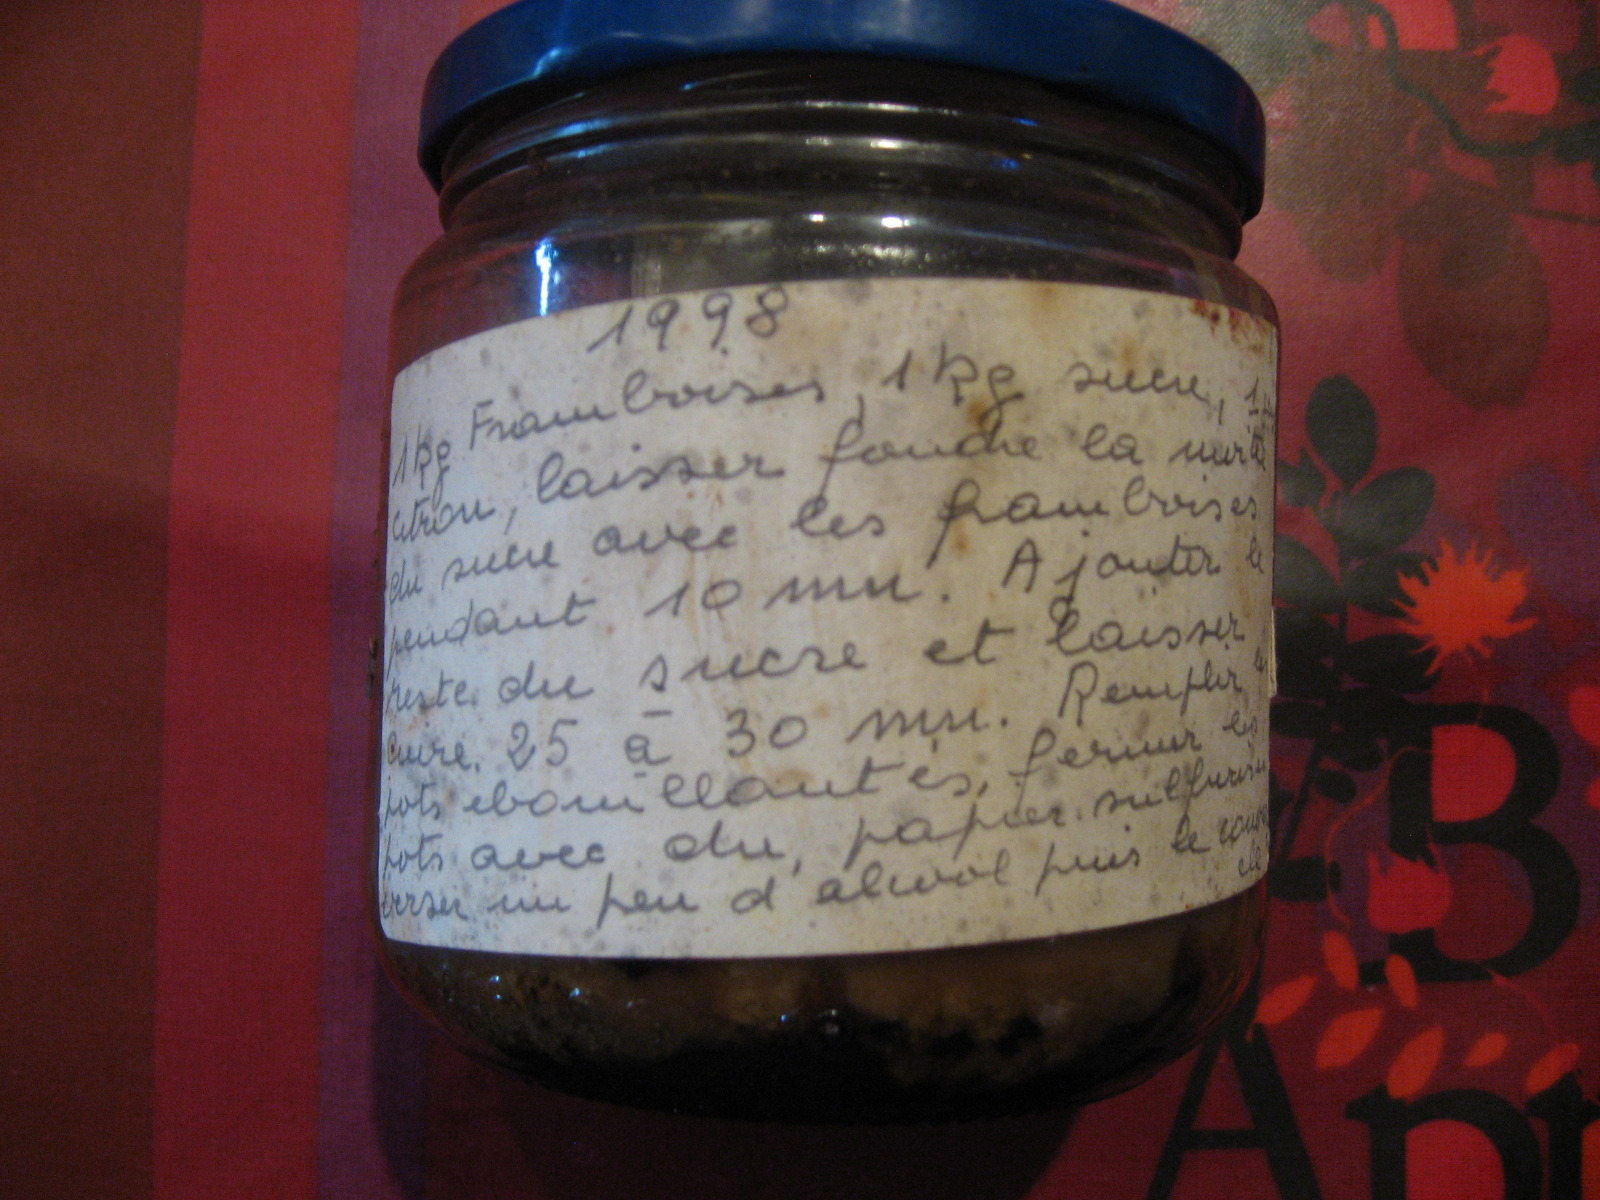 1998
1kg Framboises, 1kg sucre, 1
citron, laisser fondre la moitié
du sucre avec les framboises
pendant 10 mn. Ajouter le
reste du sucre et laisser
cuire 25 à 30 mn. Remplir les
pots ebouillantés, fermer les
pots avec du papier sulfurisé
verser un peu d'alcool puis le
B
App